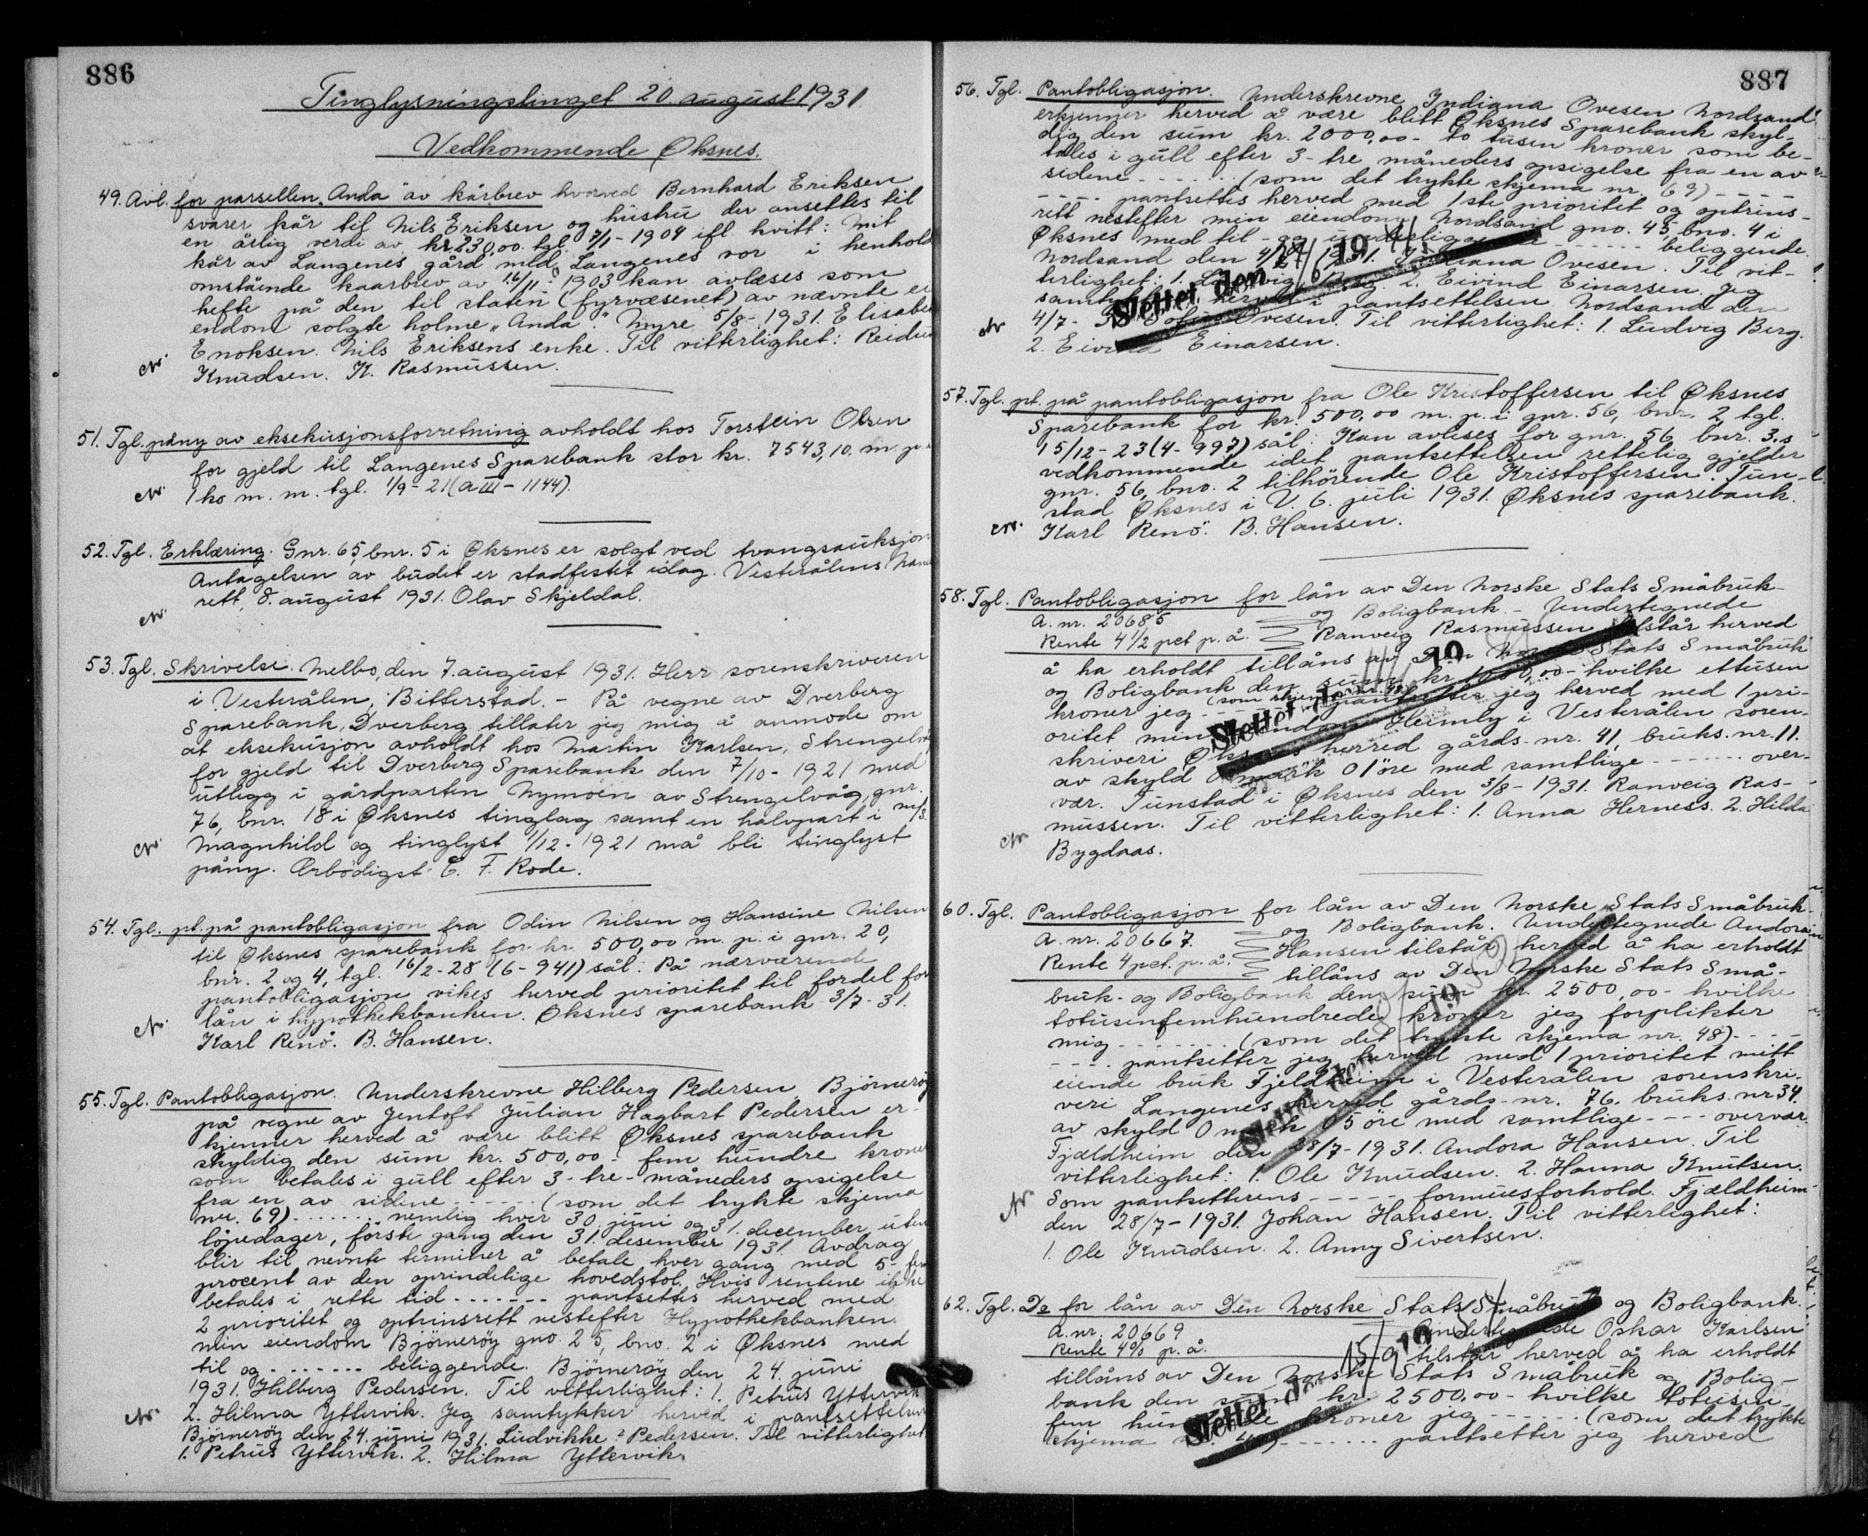 886
Tinglysningstinget 20 august 1931
Vedkommende Øksnes.
49. Avl. for parsellen "Anda" av kårbrev hvorved Bernhard Eriksen
svarer kår til Nils Eriksen og hustru der ansettes til
en årlig verdi av kr. 230,00. tgl. 7/1-1904 ifl. kvitt: Mit
kår av Langenes gård med Langenes vor i henhold
omstående kaarbrev av 16/11-1903 kan avlæses som
hefte på den til staten (fyrvæsenet) av nævnte ei
endom solgte holme "Anda". Myre 5/8-1931. Elisabet
Enoksen. Nils Eriksens enke. Til vitterlighet: Reidun
Knudsen. K. Rasmussen.
51. Tgl. påny av eksekusjonsforretning avholdt hos Torstein Olsen
for gjeld til Langenes Sparebank stor kr. 7543,10. m. p.
1 ko m. m. tgl. 1/9-21 (a III-1144).
52. Tgl. Erklæring. Gnr. 65, bnr. 5 i Øksnes er solgt ved tvangsauksjon
Antagelsen av budet er stadfestet idag. Vesterålens
rett, 8. august 1931. Olav Skjeldal.
53. Tgl. Skrivelse. Melbo, den 7. august 1931. Herr sorenskriveren
i Vesterålen, Bitterstad. - På vegne av Dverberg
Sparebank, Dverberg tillater jeg mig å anmode om
at eksekusjon avholdt hos Martin Karlsen, Strengelvåg
for gjeld til Dverberg Sparebank den 7/10-1921 med
utlegg i gårdparten Nymoen av Strengelvåg, gnr.
76, bnr. 18 i Øksnes tinglag samt en halvpart i m/s.
Magnhild og tinglyst 1/12-1921 må bli tinglyst
påny. Ærbødigst E. F. Rode.
54. Tgl. pt. på pantobligasjon fra Odin Nilsen og Hansine Nilsen
til Øksnes sparebank for kr. 500,00 m. p. i gnr. 20,
bnr. 2 og 4, tgl. 16/2-28 (6-941) sål: På nærværende
pantobligasjon vikes herved prioritet til fordel for
lån i hypothekbanken. Øksnes sparebank 3/7-31.
Karl Renö. B. Hansen.
55. Tgl. Pantobligasjon. Underskrevne Hilberg Pedersen Björnerøy
på vegne av Jentoft Julian Hagbart Pedersen er-
kjenner herved å være blitt Øksnes sparebank
skyldig den sum kr. 500,00 - fem hundre kroner
som betales i gull efter 3-tre-måneders opsigelse
fra en av sidene ...... (som det trykte skjema
nr. 69) ...... nemlig hver 30 juni og 31. december uten
löpedager, förste gang den 31. desember 1931. Avdrag
blir til nevnte terminer å betale hver gang med 5-fem
procent av den oprindelige hovedstol. Hvis rentene ikke
betales i rette tid ....... pantsettes herved med
2 prioritet og optrinsrett nestefter Hypothekbanken
min eiendom Björnerøy gno. 25, bno. 2 i Øksnes med
til og ........ beliggende. Björnerøy den 24. juni
1931. Hilberg Pedersen. Til vitterlighet: 1. Petrus Yttervik
2. Hilma Yttervik. Jeg samtykker herved i pantsettelsen
Björnerøy den 24. juni 1931. Ludvikke Pedersen. Til vitterlighet:
1. Petrus Yttervik. 2. Hilma Yttervik.
887
56. Tgl. Pantobligasjon. Underskrevne Indiana Ovesen Nordsand
erkjenner herved å være blitt Øksnes Sparebank skyl-
dig den sum kr. 2000,00 - to tusen kroner som be-
tales i gull efter 3-tre måneders opsigelse fra en av
sidene ...... (som det trykte skjema nr. 69) ....
.... pantsettes herved med 1ste prioritet og optrins-
rett nestefter min eiendom Nordsand gno. 45, bno. 4 i
Øksnes med til og ...... beliggende.
Nordsand den 4/7 1931. Indiana Ovesen. Til vit-
terlighet: 1. Ludvig Berg. 2. Eivind Einarsen. Jeg
samtykker herved i pantsettelsen. Nordsand den
4/7- Ovesen. Til vitterlighet: 1. Ludvig Berg.
2. Eivind Einarsen.
Slettet den 24/6 19
57. Tgl. pt. på pantobligasjon fra Ole Kristoffersen til Øksnes
Sparebank for kr. 500,00 m. p. i gnr. 56, bnr. 2, tgl.
15/12-23 (4-997) sål: Kan avlises for gnr. 56 bnr. 3.s
vedkommende idet pantsettelsen rettelig gjelder
gnr. 56, bno. 2 tilhörende Ole Kristoffersen. Tun-
stad Øksnes i V. 6. juli 1931. Øksnes sparebank.
Karl Renö. B. Hansen.
58. Tgl. Pantobligasjon for lån av Den Norske Stats Småbruk-
A. nr. 20685 og Boligbank. - Undertegnede
Rente 4 1/2 pct p. å. Ranveig Rasmussen tilstår herved
å ha erholdt tillåns av Den Norske Stats Småbruk
og Boligbank den sum kr. 1000,00 - hvilke ettusen
kroner jeg ...... pantsetter jeg herved med 1 pri-
oritet min eiendom Heimly i Vesterålen soren-
skriveri Øksnes herred gårds-nr. 41, bruks-nr. 11.
av skyld 0 mark 01 öre med samtlige ...... over-
vær. Tunstad i Øksnes den 3/8-1931. Ranveig Ras-
mussen. Til vitterlighet: 1. Anna Herness 2. Hilda
Bygdaas.
Slettet den 19
60. Tgl. Pantobligasjon for lån av Den Norske Stats Småbruk-
A. nr. 20667. og Boligbank. Undertegnede Andora
Rente 4 pct. p. å. Hansen tilstår herved å ha erholdt
tillåns av Den Norske Stats Små-
bruk- og Boligbank den sum kr. 2500,00 - hvilke
totusenfemhundrede kroner jeg forplikter
mig ........ (som det trykte skjema nr. 48) ....
.... pantsetter jeg herved med 1 prioritet mitt
eiende bruk Fjeldheim i Vesterålen sorenskri-
veri Langenes herred gårds-nr. 76, bruks-nr 34.
av skyld 0 mark 05 öre med samtlige .... overvær.
Fjældheim den 28/7-1931. Andora Hansen. Til
vitterlighet: 1. Ole Knudsen. 2. Hanna Knutsen.
Som pantsetterens ...... formuesforhold. Fjældheim
den 28/7-1931. Johan Hansen. Til vitterlighet:
1. Ole Knudsen. 2. Anny Sivertsen.
Slettet den 19
62. Tgl. Do for lån av Den Norske Stats Småbruk og Boligbank.
A. nr. 20669 Undertegnede Oskar Karlsen
Rente 4% p. å. tilstår herved å ha erholdt
tillåns av Den Norske Stats Småbruk og Bolig-
bank den sum kr. 2500,00 - hvilke totusen-
fem hundrede kroner jeg ...... (som det trykte
skjema nr. 48) ....... pantsetter jeg herved
Slettet den 15/9 19